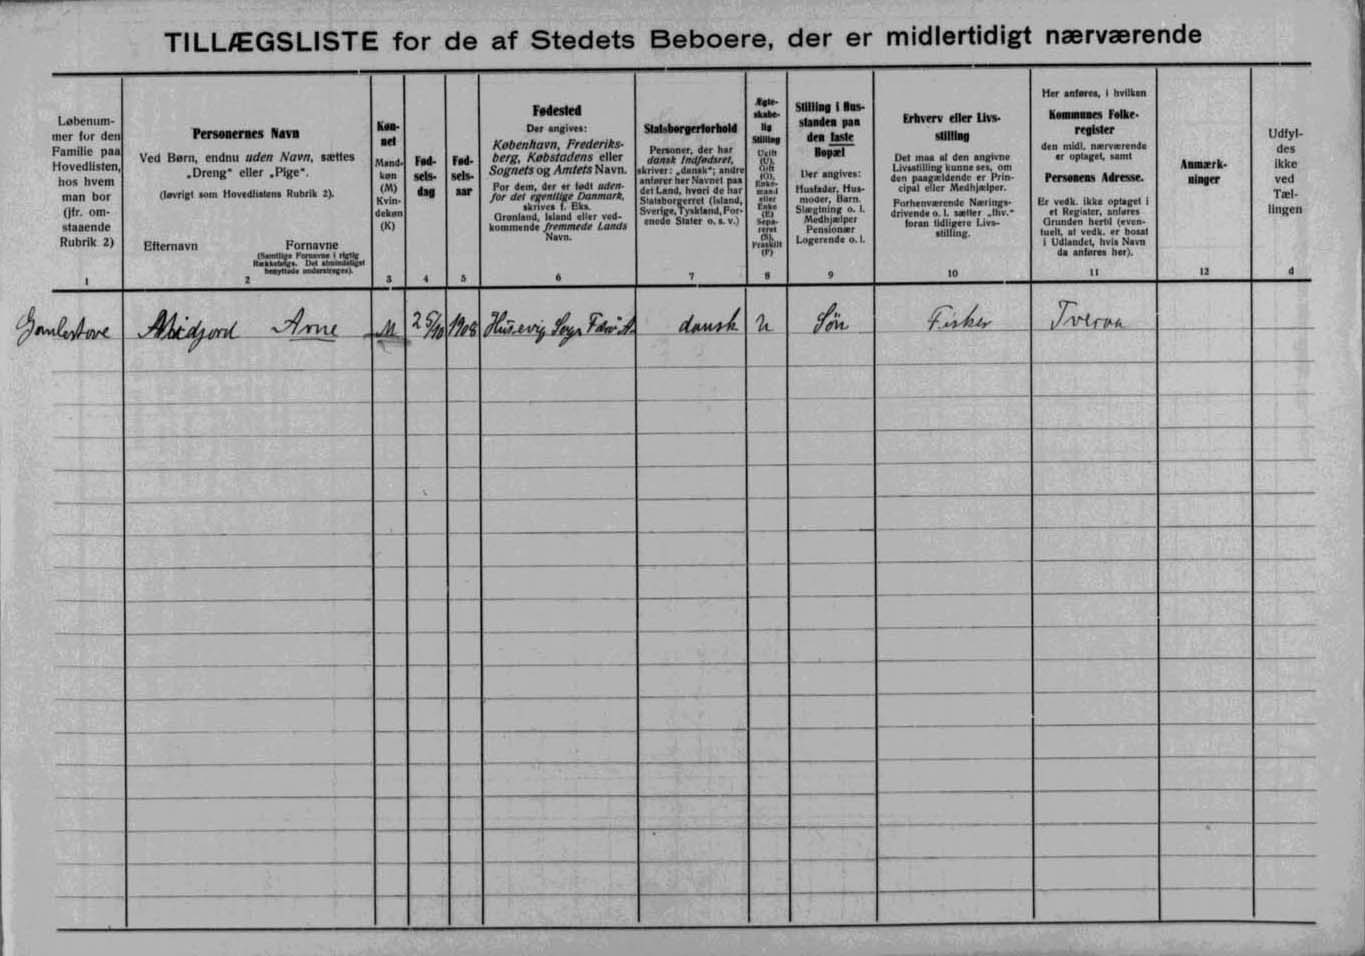 TILLÆGSLISTE for de af Stedets Beboere, der er midlertidigt nærværende
Løbenum-
mer for den
Familie paa
Hovedlisten,
hos hvem
man bor
(jfr. om-
staaende
Rubrik 2)
1
Personernes Navn
Ved Børn, endnu uden Navn, sættes
„Dreng“ eller „Pige“.
(Iøvrigt som Hovedlistens Rubrik 2).
Efternavn
Fornavne
(Samtlige Fornavne i rigtig
Rækkefølge. Det almindeligst
benyttede understreges).
2
Køn-
net
Mand-
køn
(M)
Kvin-
dekøn
(K)
3
Fød-
sels-
dag
4
Fød-
sels-
aar
5
Fødested
Der angives:
København, Frederiks-
berg, Købstadens eller
Sognets og Amtets Navn.
For dem, der er født uden-
for det egentlige Danmark,
skrives f. Eks.
Grønland, Island eller ved-
kommende fremmede Lands
Navn.
6
Statsborgerforhold
Personer, der har
dansk Indfødsret,
skriver: „dansk“; andre
anfører her Navnet paa
det Land, hvori de har
Statsborgerret (Island,
Sverige, Tyskland, For-
enede Stater o. s. v.)
7
Ægte-
skabe-
lig
Stilling
Ugift
(U),
Gift
(G),
Enke-
mand
eller
Enke
(E)
Sepa-
reret
(S),
Fraskilt
(F)
8
Stilling i Hus-
standen paa
den faste
Bopæl
Der angives:
Husfader, Hus-
moder, Barn,
Slægtning o. l.
Medhjælper
Pensionær
Logerende o. l.
9
Erhverv eller Livs-
stilling
Det maa af den angivne
Livsstilling kunne ses, om
den paagældende er Prin-
cipal eller Medhjælper.
Forhenværende Nærings-
drivende o. l. sætter „fhv.“
foran tidligere Livs-
stilling.
10
Her anføres, i hvilken
Kommunes Folke-
register
den midl. nærværende
er optaget, samt
Personens Adresse.
Er vedk. ikke optaget i
et Register, anføres
Grunden hertil (even-
tuelt, at vedk. er bosat
i Udlandet, hvis Navn
da anføres her).
11
Anmærk-
ninger
12
Udfyl-
des
ikke
ved
Tæl-
lingen
d
Gamlestove Midjord Arne M 25/10 1908 Husevig Sogn Færø A. dansk U Søn Fisker Tveraa